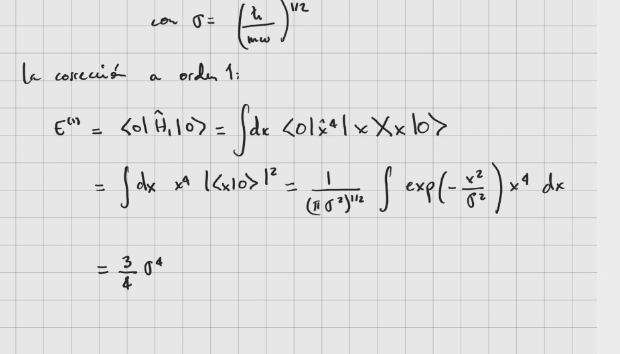 con σ = (ħ/mω)^1/2
la corrección a orden 1:
E⁽¹⁾ = <0|Ĥ₁|0> = ∫dx <0|x̂⁴|x><x|0>
= ∫dx x⁴ |<x|0>|² = 1/(πσ²)^1/2 ∫ exp(-x²/σ²) x⁴ dx
= 3/4 σ⁴